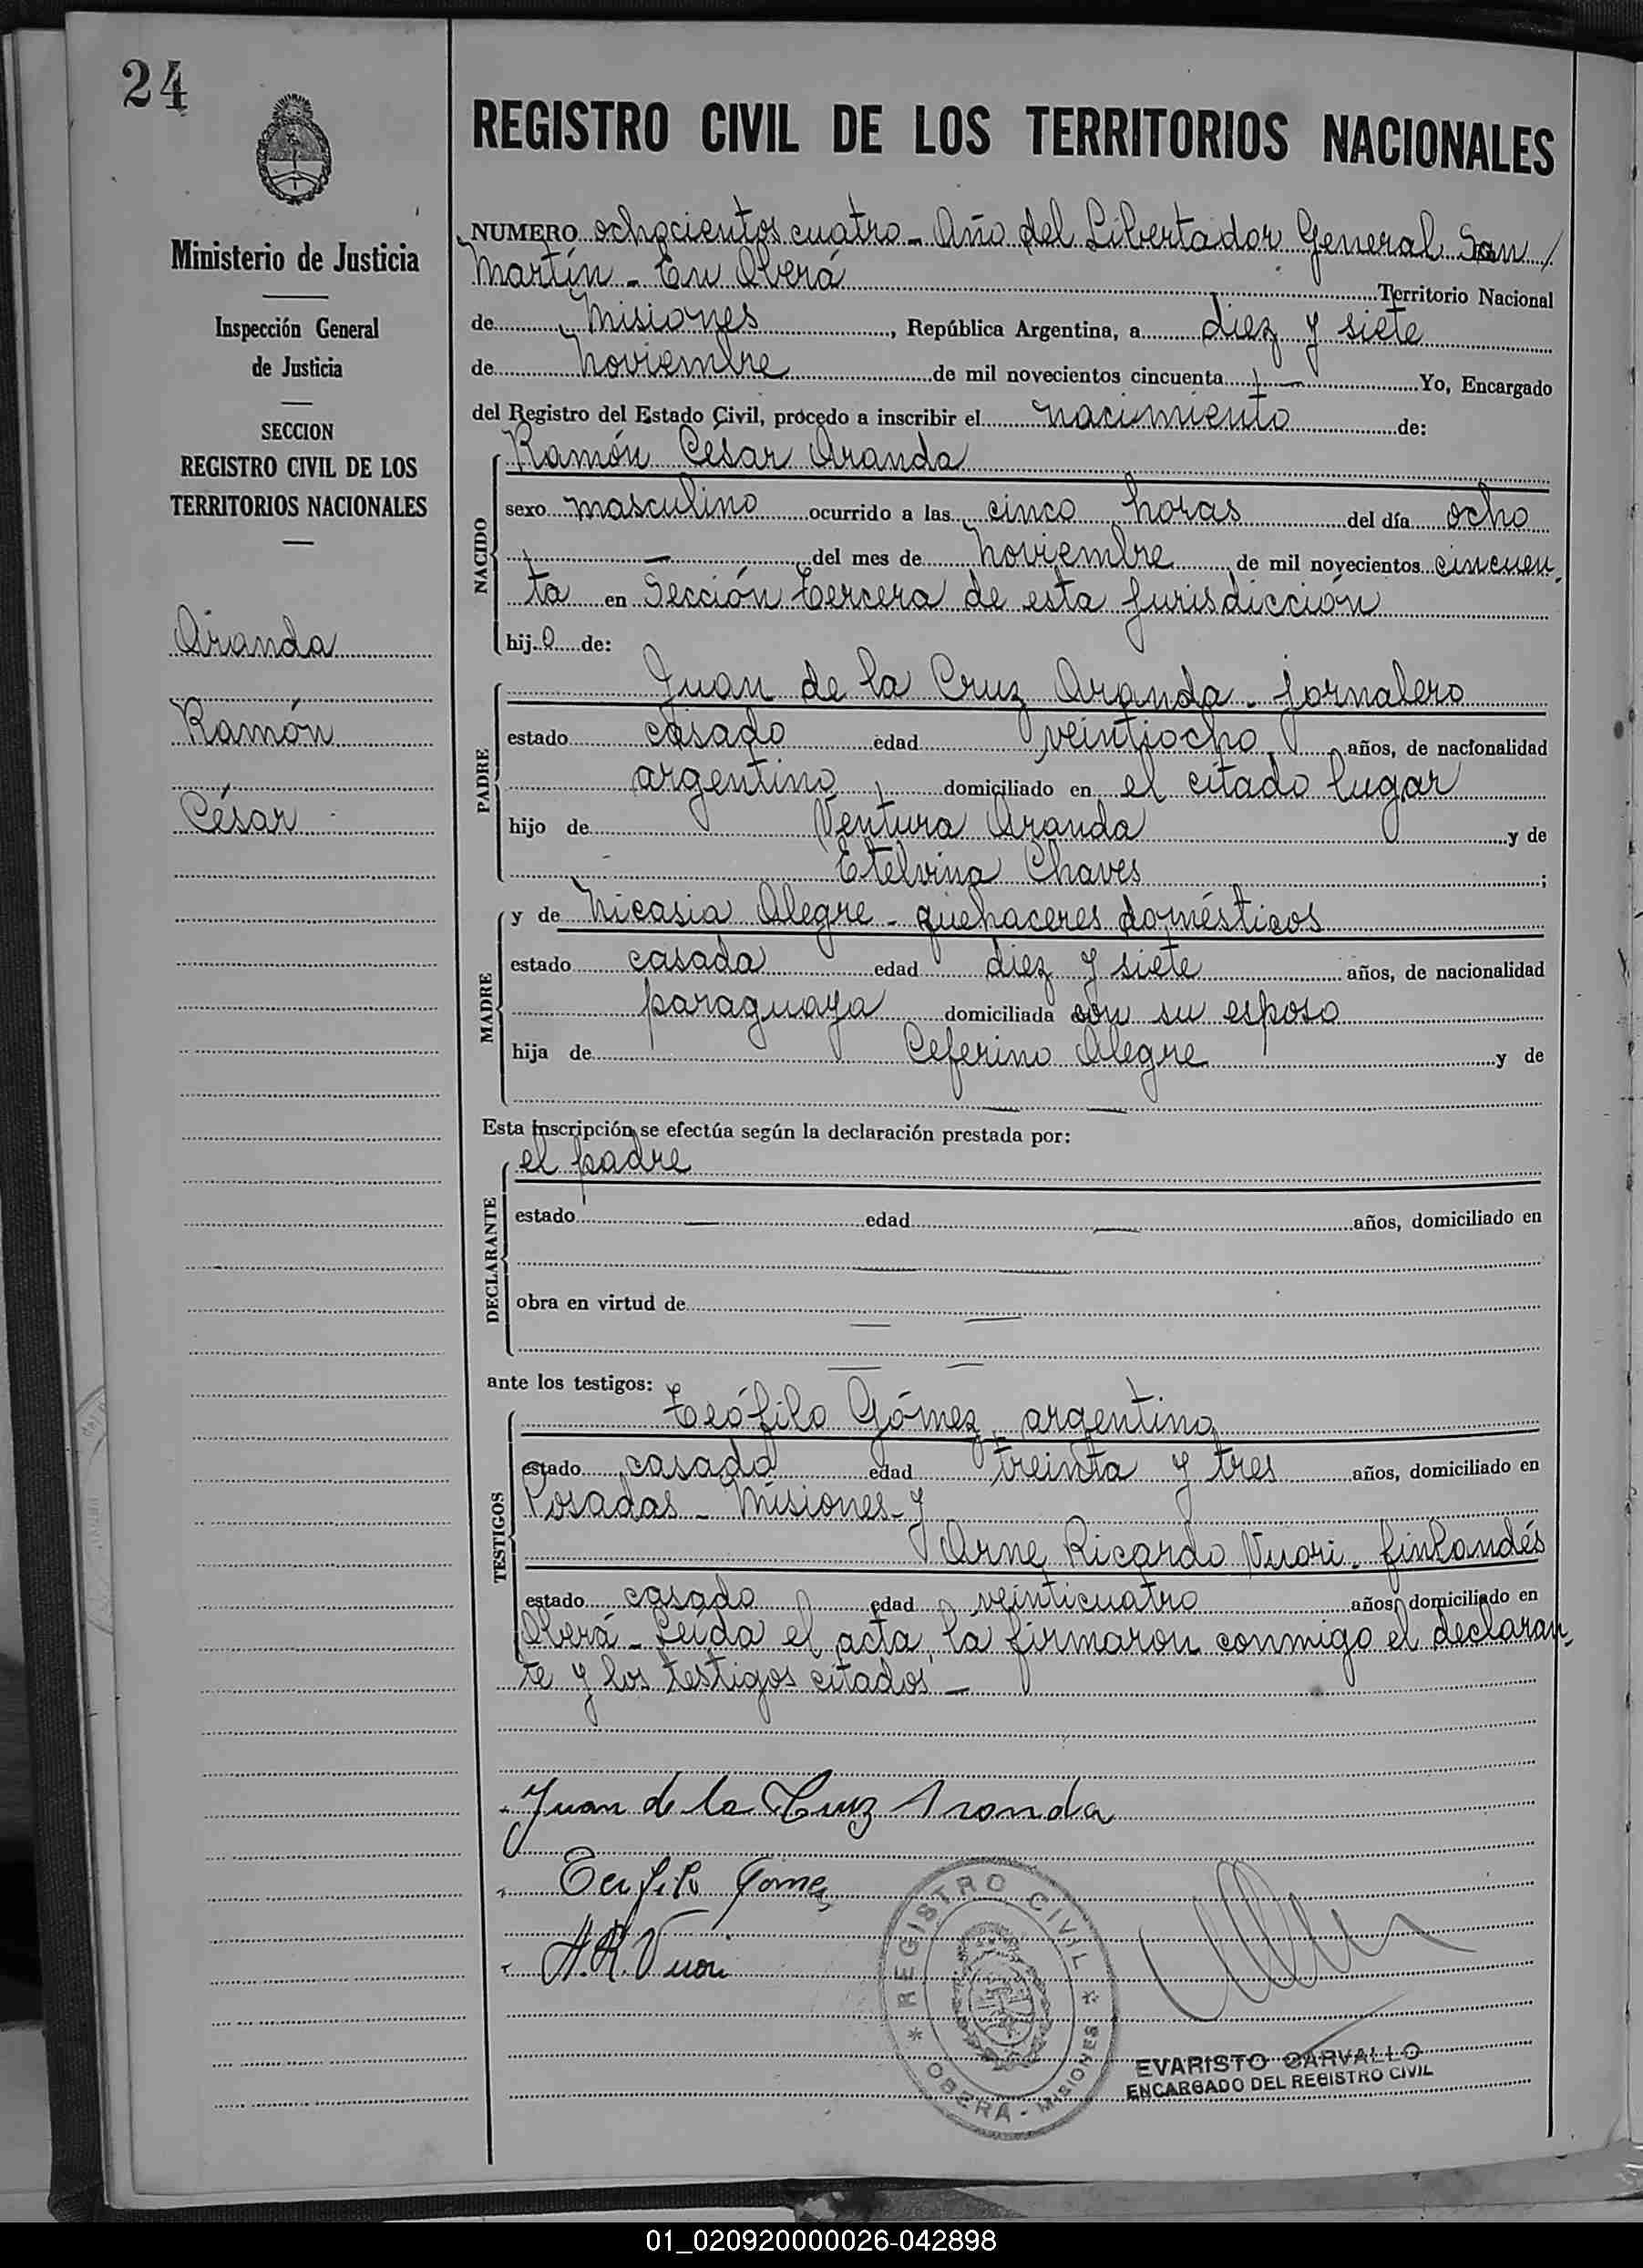 24
Ministerio de Justicia
Inspección General
de Justicia
SECCION
REGISTRO CIVIL DE LOS
TERRITORIOS NACIONALES
Aranda
Ramón
César
REGISTRO CIVIL DE LOS TERRITORIOS NACIONALES
NUMERO ochocientos cuatro - Año del Libertador General San /
Martín - En Oberá Territorio Nacional
de Misiones, República Argentina, a diez y siete
de Noviembre de mil novecientos cincuenta Yo, Encargado
del Registro del Estado Civil, procedo a inscribir el nacimiento de:
NACIDO
Ramón Cesar Aranda
sexo masculino ocurrido a las cinco horas del día ocho
del mes de Noviembre de mil novecientos cincuen
ta en Sección Tercera de esta Jurisdicción
hijo de:
PADRE
Juan de la Cruz Aranda - jornalero
estado casado edad veintiocho años, de nacionalidad
argentino domiciliado en el citado lugar
hijo de Ventura Aranda y de
Etelvina Chaves ;
MADRE
y de Nicasia Alegre - quehaceres domésticos
estado casada edad diez y siete años, de nacionalidad
paraguaya domiciliada con su esposo
hija de Ceferino Alegre y de
Esta inscripción se efectúa según la declaración prestada por:
DECLARANTE
el padre
estado edad años, domiciliado en
obra en virtud de
ante los testigos:
TESTIGOS
Teófilo Gómez, argentino
estado casado edad treinta y tres años, domiciliado en
Posadas - Misiones - y
Arne Ricardo Vuori - finlandés
estado casado edad veinticuatro años domiciliado en
Oberá - Leída el acta, la firmaron conmigo el declaran-
te y los testigos citados -
Juan de la Cruz Aranda
Teofilo Gomez
A.R. Vuori
REGISTRO CIVIL
* OBERA - MISIONES *
EVARISTO CARVALLO
ENCARGADO DEL REGISTRO CIVIL
01_020920000026-042898